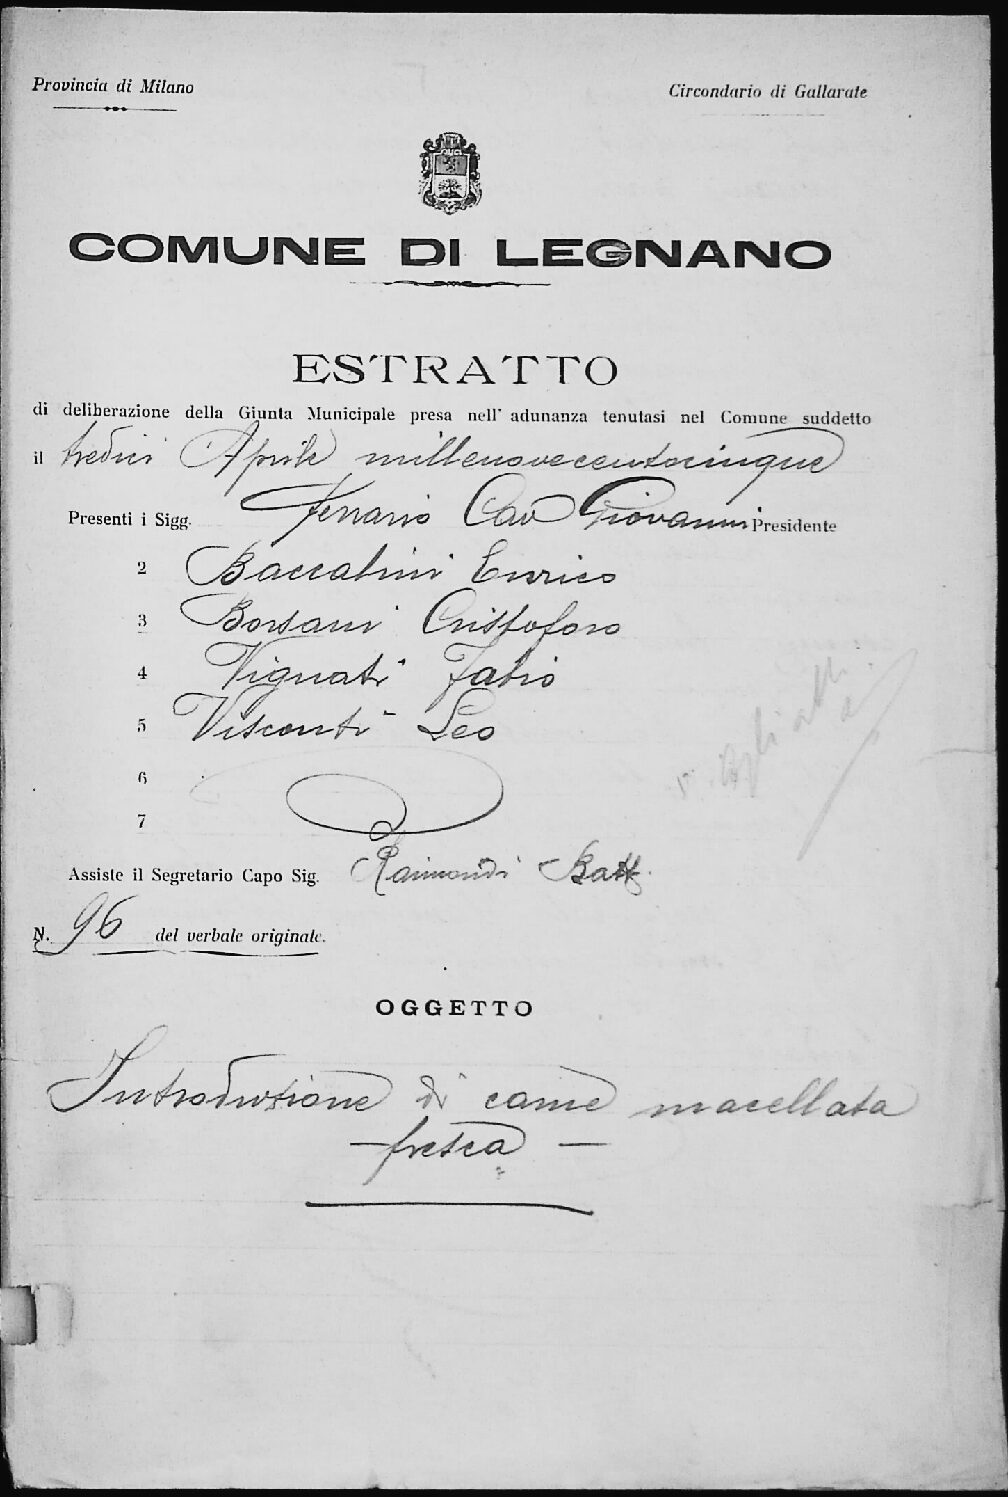 Provincia di Milano
Circondario di Gallarate
COMUNE DI LEGNANO
ESTRATTO
di deliberazione della Giunta Municipale presa nell' adunanza tenutasi nel Comune suddetto
il tredici Aprile millenovecentocinque
Presenti i Sigg. Ferrario Cav Giovanni Presidente
2 Baccalini Enrico
3 Borsani Cristoforo
4 Vignati Fabio
5 Visconti Leo
6
7
Assiste il Segretario Capo Sig. Raimondi Batt.
N. 96 del verbale originale.
OGGETTO
Introduzione di carne macellata
— fresca —